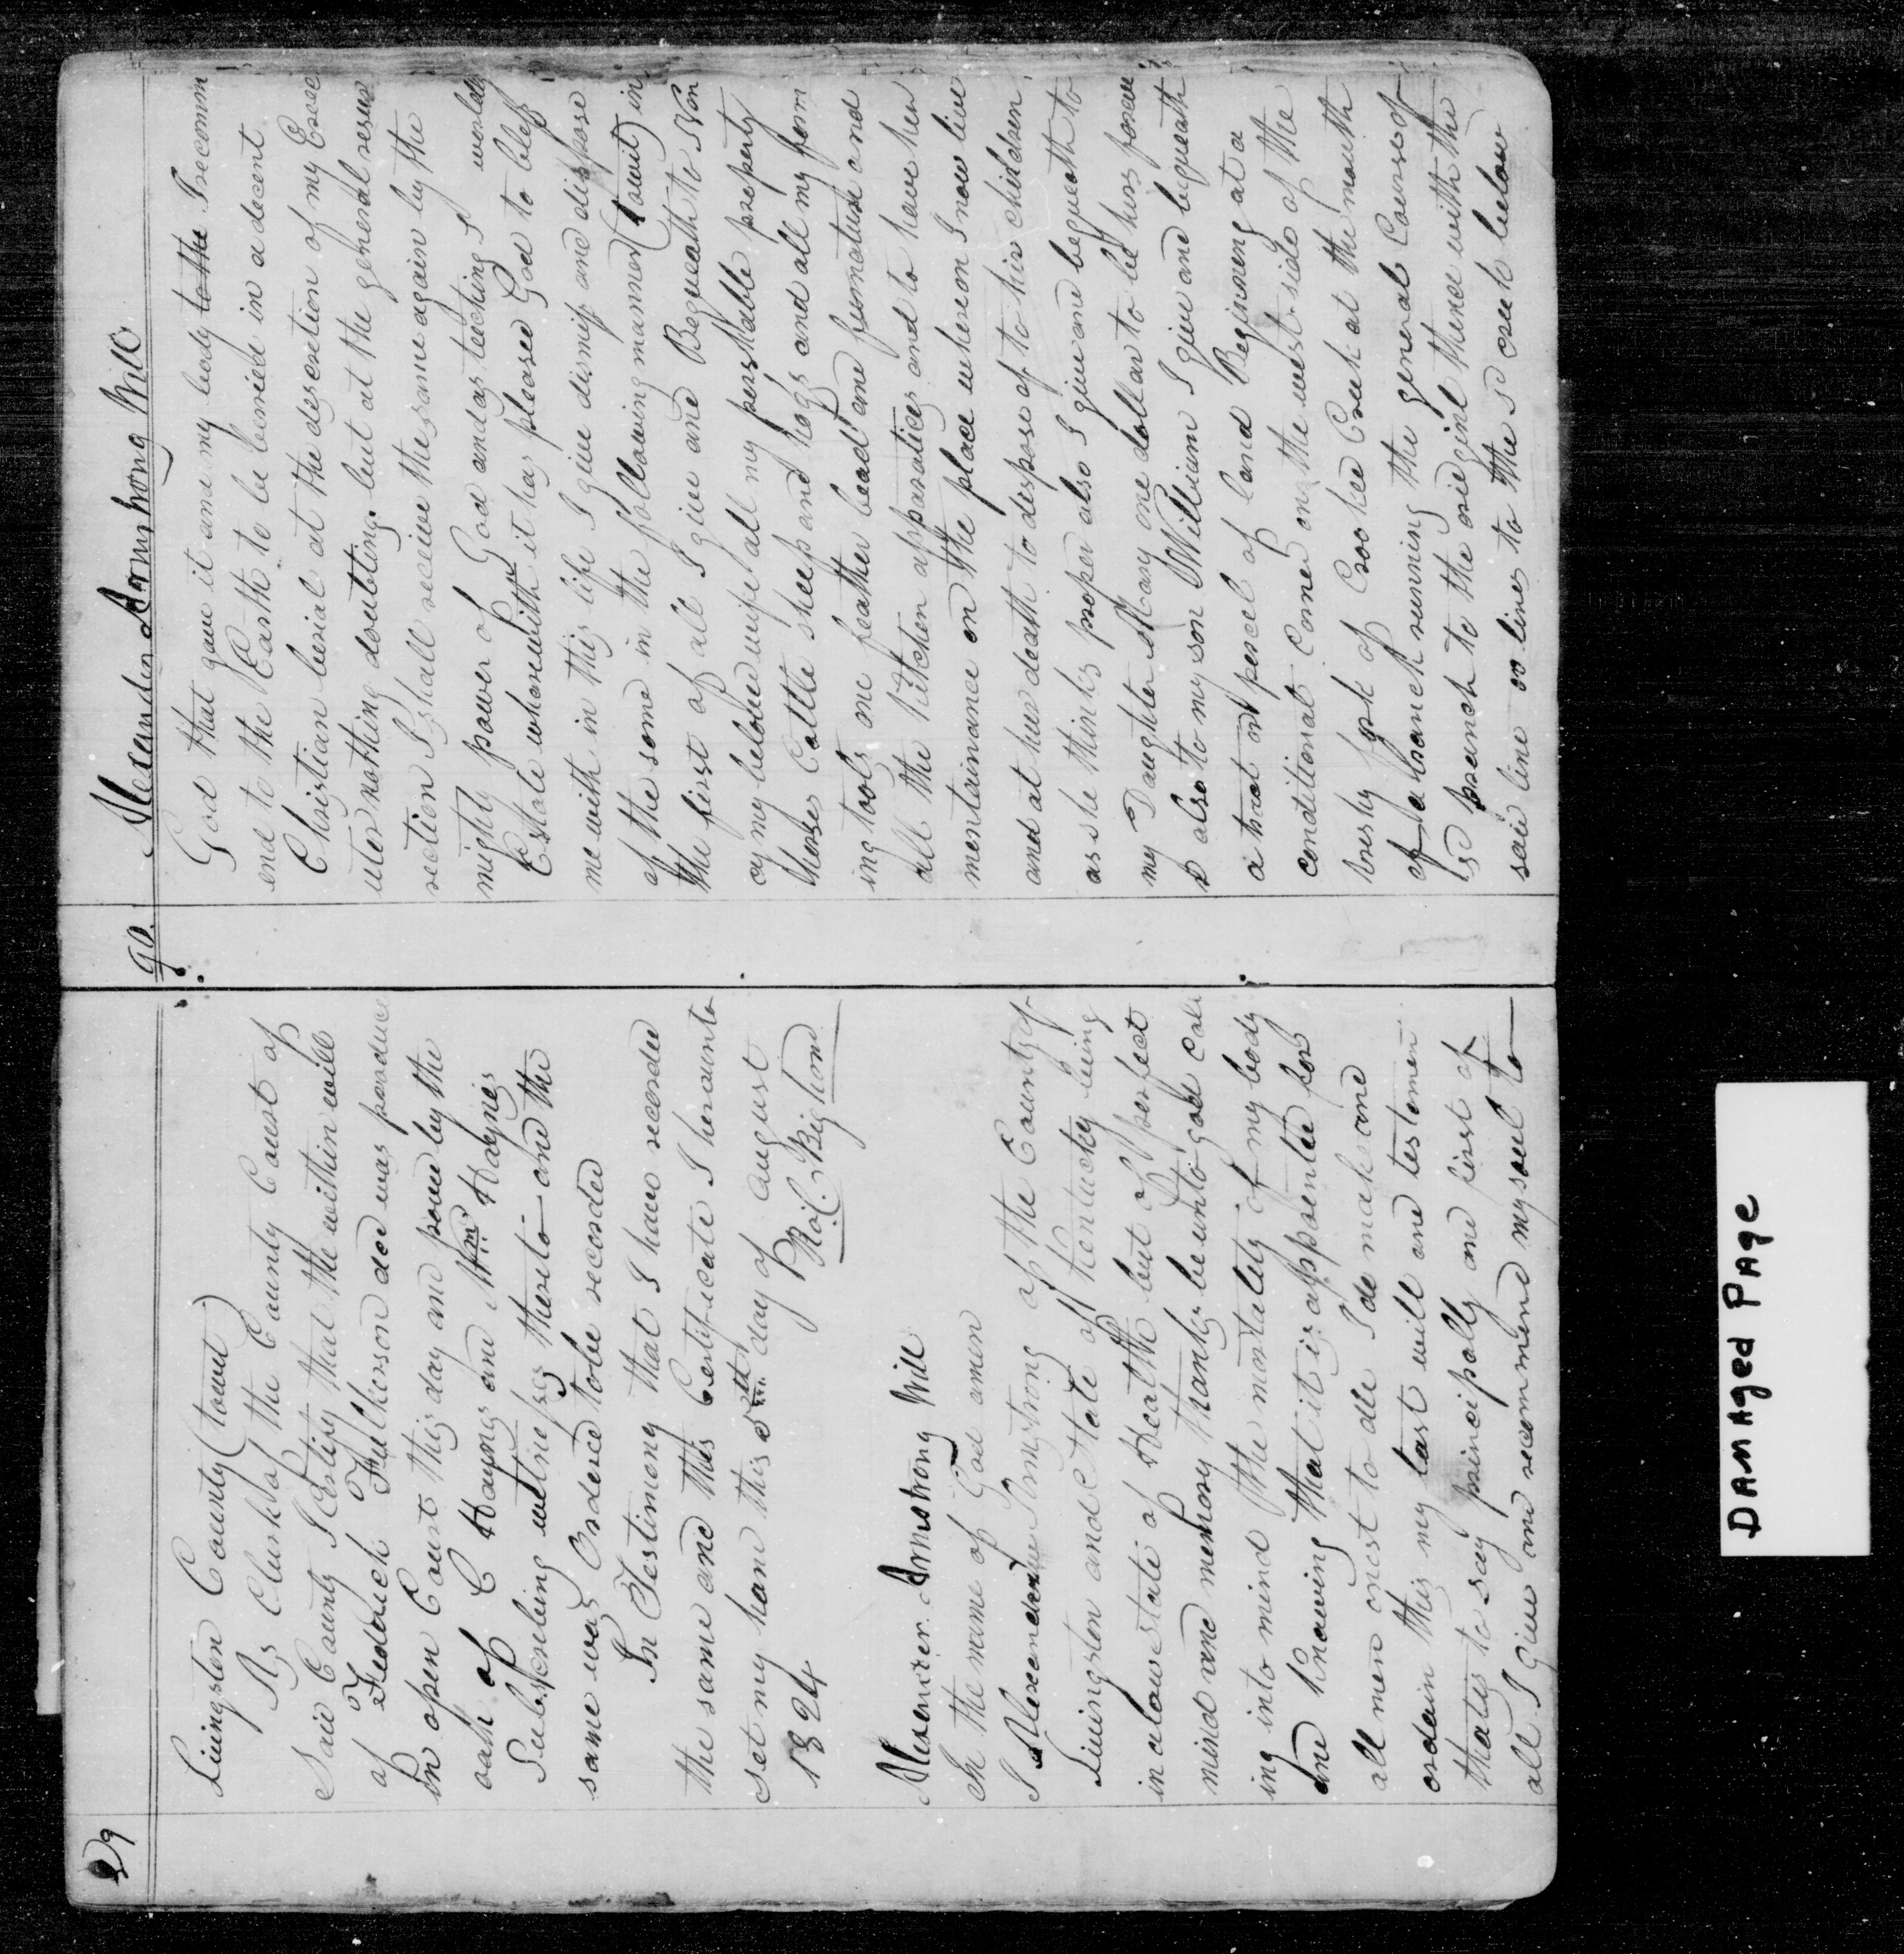 89
Livingston County (towit)
As Clerk of the County Court of
Said County I Certify that the within will
of Frederick Fulkerson decd was produce
in open Court this day and prove by the
oath of C Haynes and Wm Haynes
Subscribing witnesses thereto and the
same was Ordered to be recorded
In Testimony that I have recorded
the same and this Certificate I hereunto
set my hand this 5th day of August
1824
Alexander Armstrong Will
In the name of God amen
I Alexander Armstrong of the County of
Livingston and State of Kentucky being
in a low state of Health but of perfect
mind and memory thanks be unto god call
ing into mind the mortality of my body
and knowing that it is appointed for
all men onest to die I do make and
ordain this my last will and testemen
that is to say principally and first of
all I give and recommend my soul to
90.
Alexander Armstrong Will
God that gave it and my body to the I recomm
end to the Earth to be buried in a decent
Christian burial at the descretion of my Exec
utor nothing doubting but at the general resur
rection I shall receive the same again by the
mighty power of God and as teaching I worldly
Estate wherewith it has pleased God to bless
me with in this life I give dismiss and dispose
of the some in the following manner (towit) in
the first of all I give and Bequeath to Non
cy my beloved wife all my perishable property
horses Cattle sheep and hogs and all my form
ing tools one feather bead and furnature and
all the kitchen apparatices and to have her
mentainance on the place whereon I now live
and at her death to dispose of to his children
as she thinks proper also I give and bequeath to
my Daughter Mary one dollar to be hers forever
& also to my son William I give and bequeath
a tract or percel of land Beginning at a
conditional Corner on the west side of the
brushy fork of Crooked Creek at the mouth
of a branch running the general Course of
sd branch to the origin line thence with the
said line or lines to the sd creek below